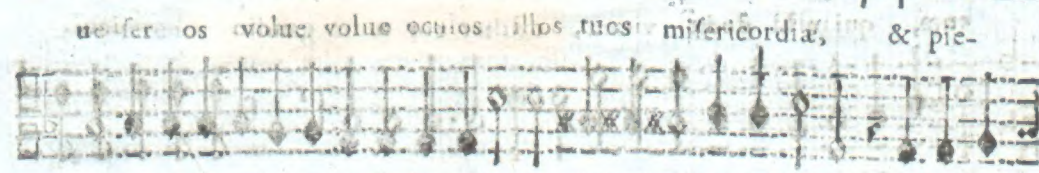 ue ser os volue volue oculos illos tuos miſericordiæ, & pie-